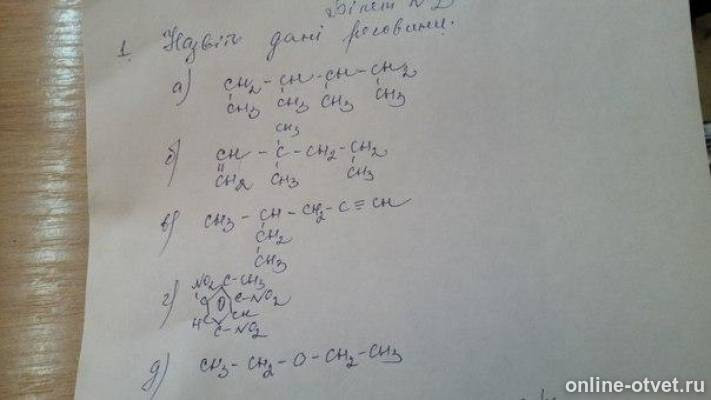 Білет N 2
1. Назвіть дані речовини.
а) CH2 - CH - CH - CH2
CH3 CH3 CH3 CH3
CH3
б) CH - C - CH2 - CH2
CH2 CH3 CH3
в) CH3 - CH - CH2 - C ≡ CH
CH2
CH3
г) NO2 C - CH3
C C - NO2
HC CH
C - NO2
д) CH3 - CH2 - O - CH2 - CH3
online-otvet.ru